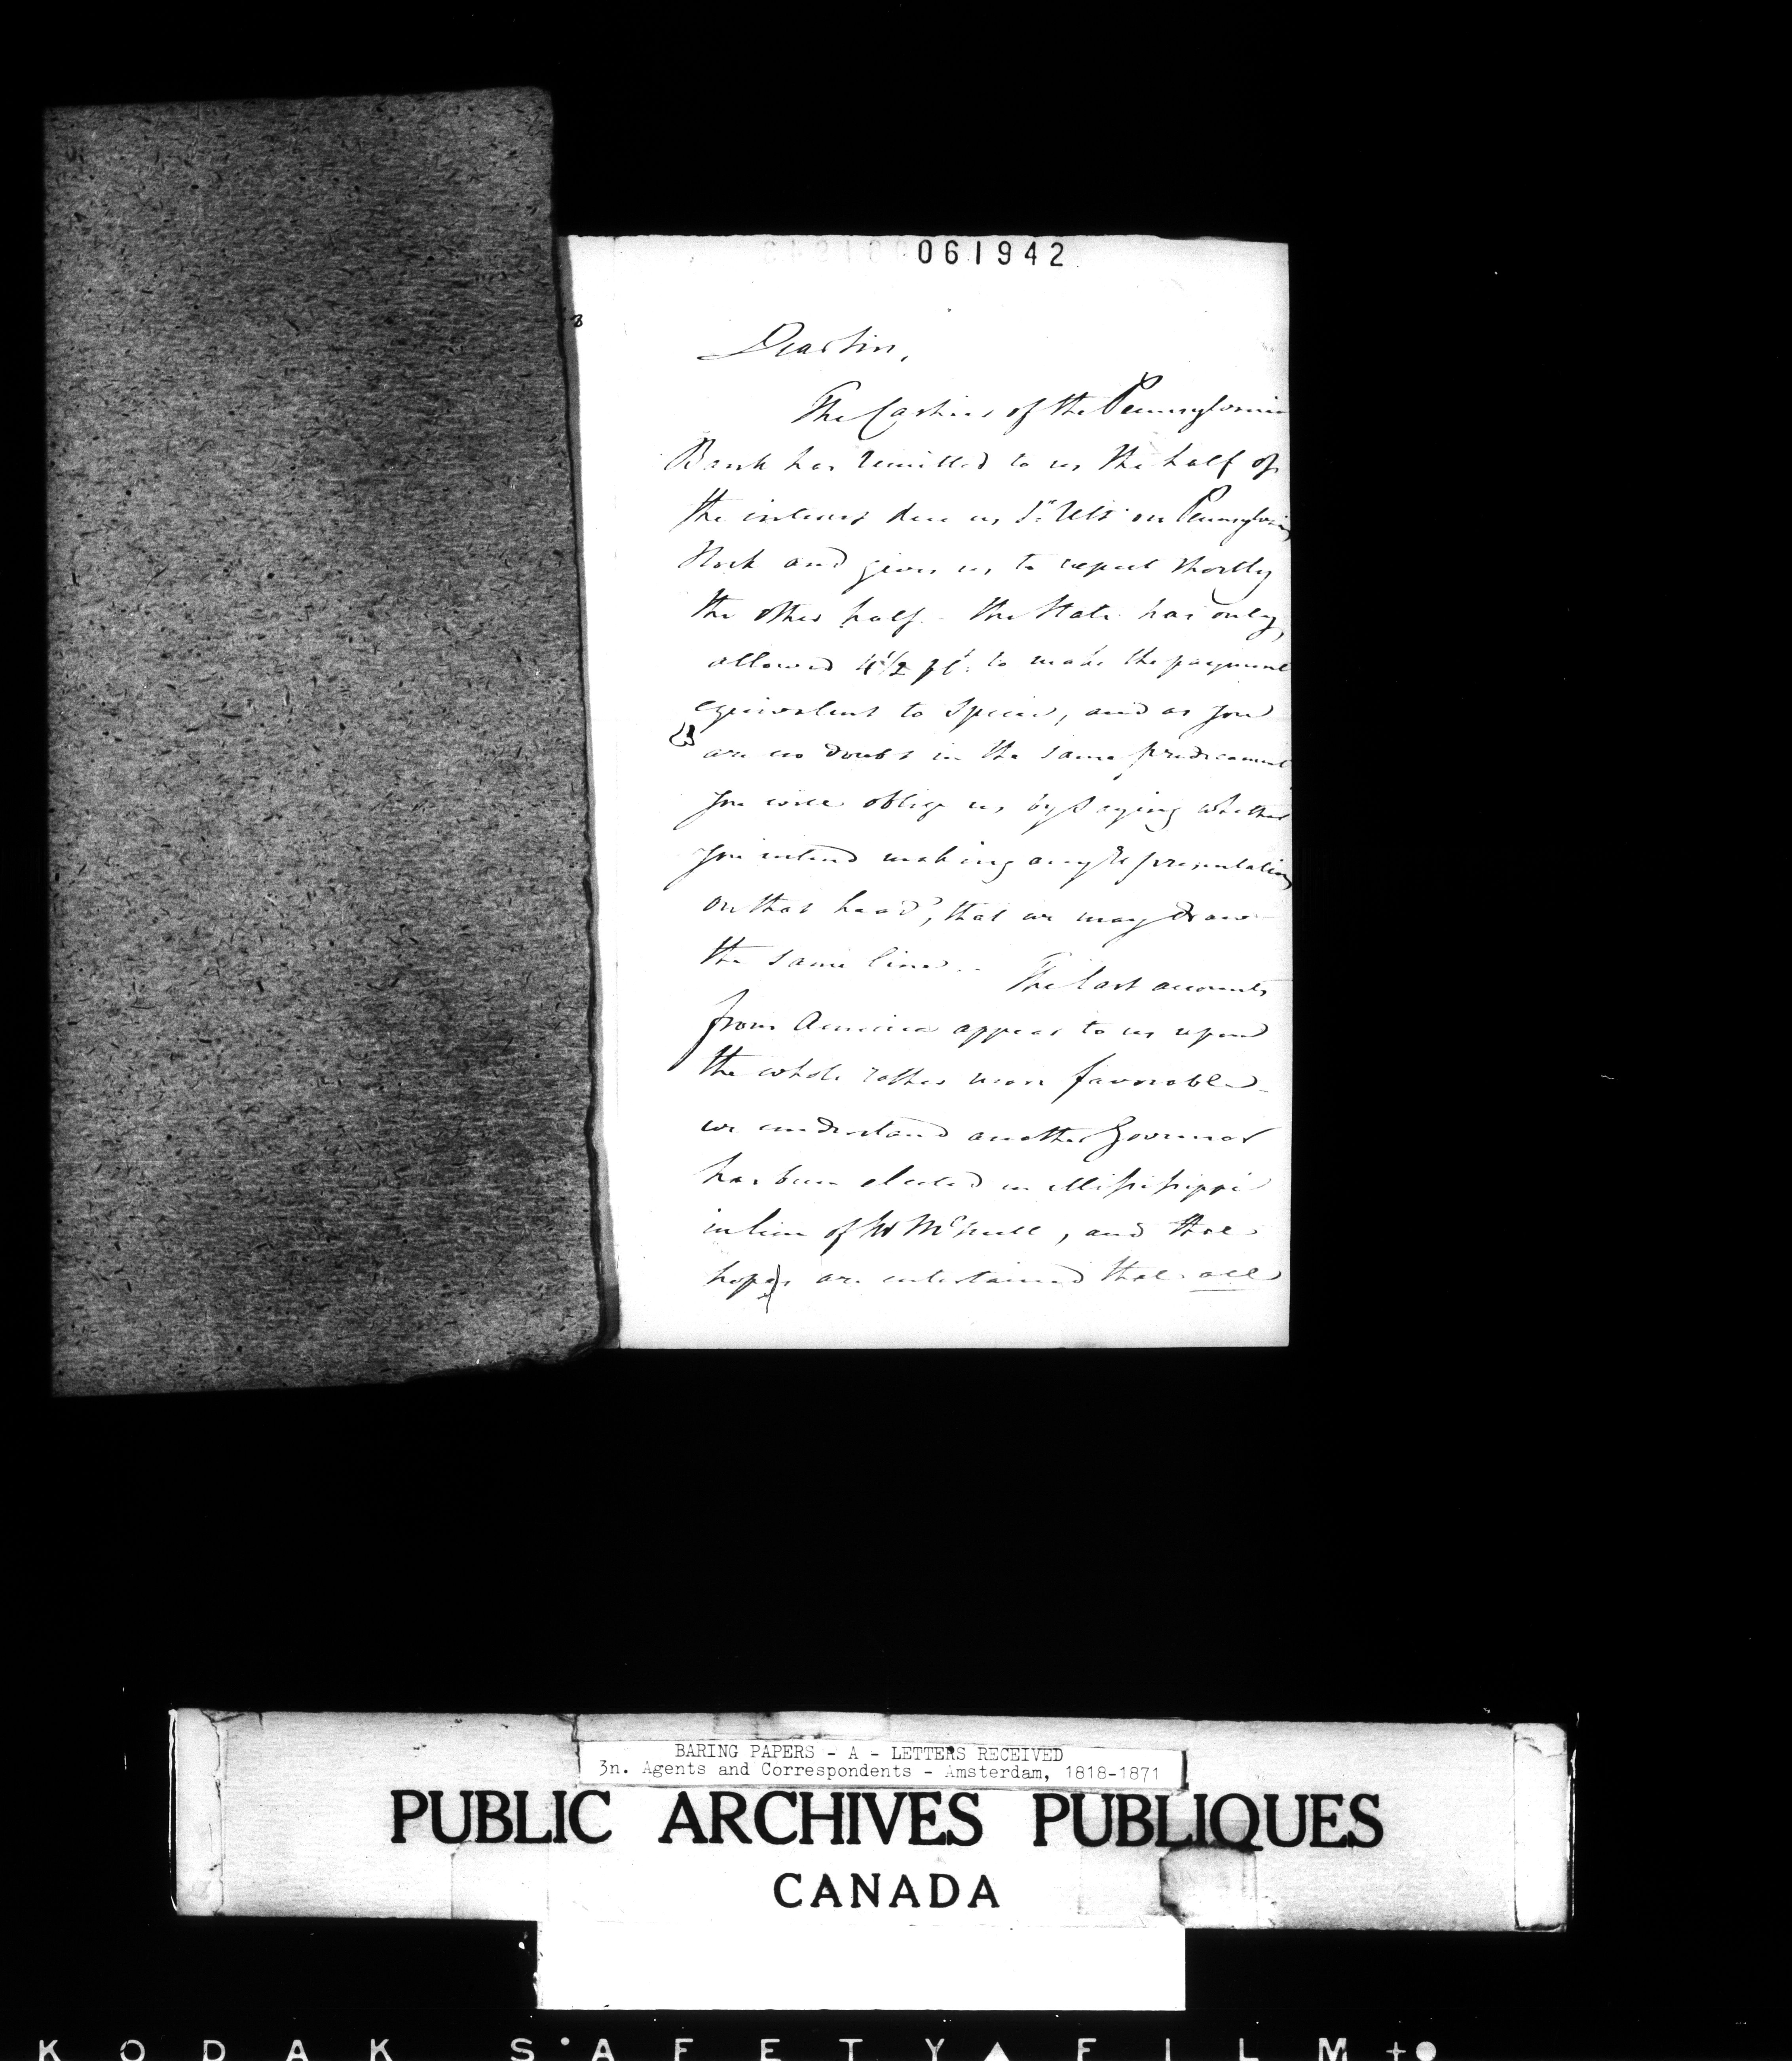 061942
Dear Sir,
The Cashier of the Pennsylvania
Bank has remitted to us the half of
the interest due us 1st Ult° on Pennsylvania
Stock and gives us to expect shortly
the other half. The State has only
allowed 4 1/2 pCt. to make the payment
equivalent to Specie, and as you
are no doubt in the same predicament
you will oblige us by saying whether
you intend making any Representation
on that head, that we may draw
the same line.. The last accounts
from America appear to us upon
the whole rather more favorable
we understand another Governor
has been elected in Mississippi
in lieu of Mr McNutt, and that
hopes are entertained that all
BARING PAPERS - A - LETTERS RECEIVED
3n. Agents and Correspondents - Amsterdam, 1818-1871
PUBLIC ARCHIVES PUBLIQUES
CANADA
KODAK SAFETY FILM